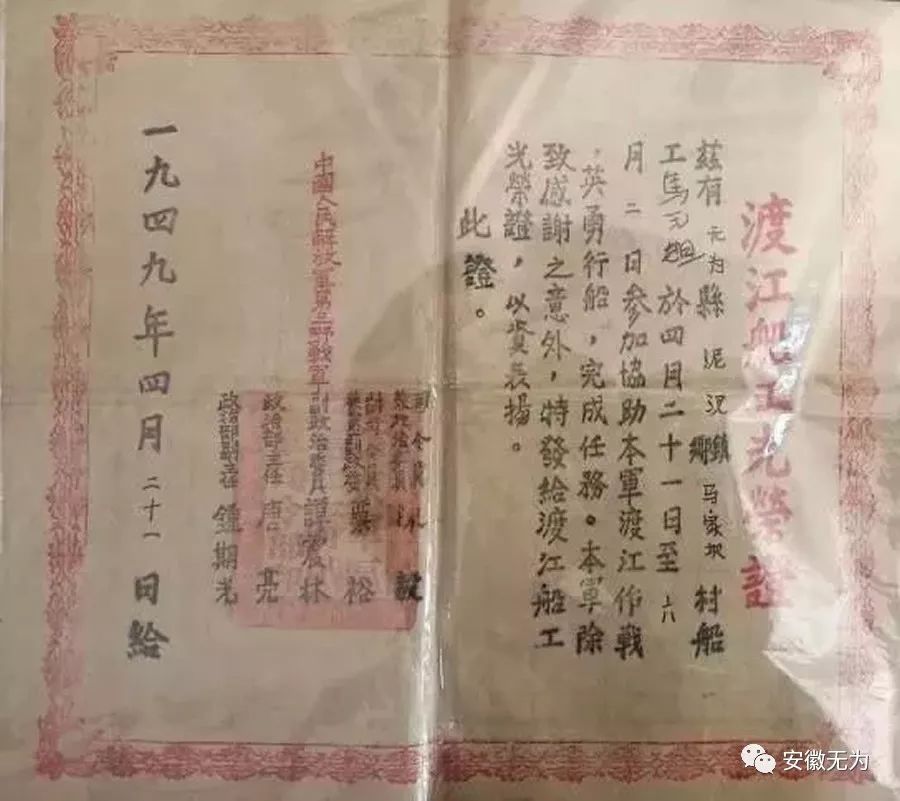 渡江船工光榮證
兹有无为縣 泥汊鄉鎮 马家坝村船
工馬於四月二十一日至六
月二日参加協助本軍渡江作戰
，英勇行船，完成任務。本軍除
致感謝之意外，特發給渡江船工
光榮證，以資表揚。
此證。
中國人民解放軍第三野戰軍
司令員
兼政治委員 陳毅
副司令員
兼第二副政委 粟裕
副政治委員 譚震林
政治部主任 唐亮
政治部副主任 鍾期光
一九四九年四月二十一日給
安徽无为